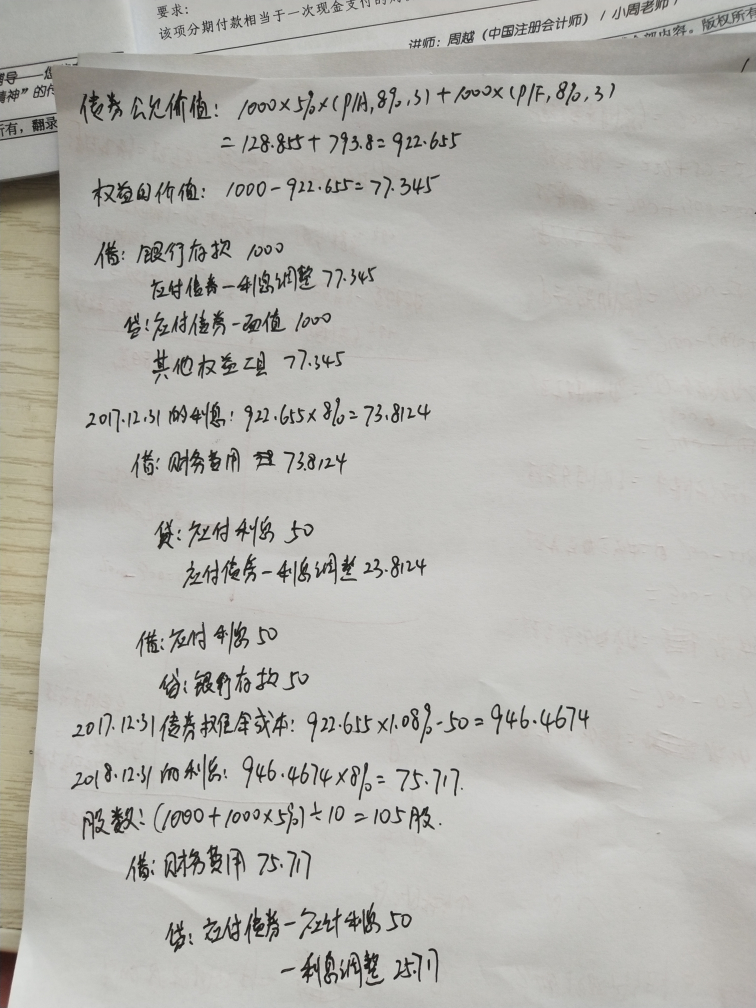 要求:
该项分期付款相当于一次现金支付的
讲师: 周越 (中国注册会计师) / 小周老师 /
内容。版权所有
精神”的
所有, 翻录
债券公允价值: 1000×5%×(P/A,8%,3)+1000×(P/F,8%,3)
=128.855+793.8=922.655
权益的价值: 1000-922.655=77.345
借: 银行存款 1000
应付债券-利息调整 77.345
贷: 应付债券-面值 1000
其他权益工具 77.345
2017.12.31的利息: 922.655×8%=73.8124
借: 财务费用 73.8124
贷: 应付利息 50
应付债券-利息调整 23.8124
借: 应付利息 50
贷: 银行存款 50
2017.12.31债券摊余成本: 922.655×1.08%-50=946.4674
2018.12.31的利息: 946.4674×8%=75.717.
股数: (1000+1000×5%)÷10=105股.
借: 财务费用 75.717
贷: 应付债券-应计利息 50
-利息调整 25.717